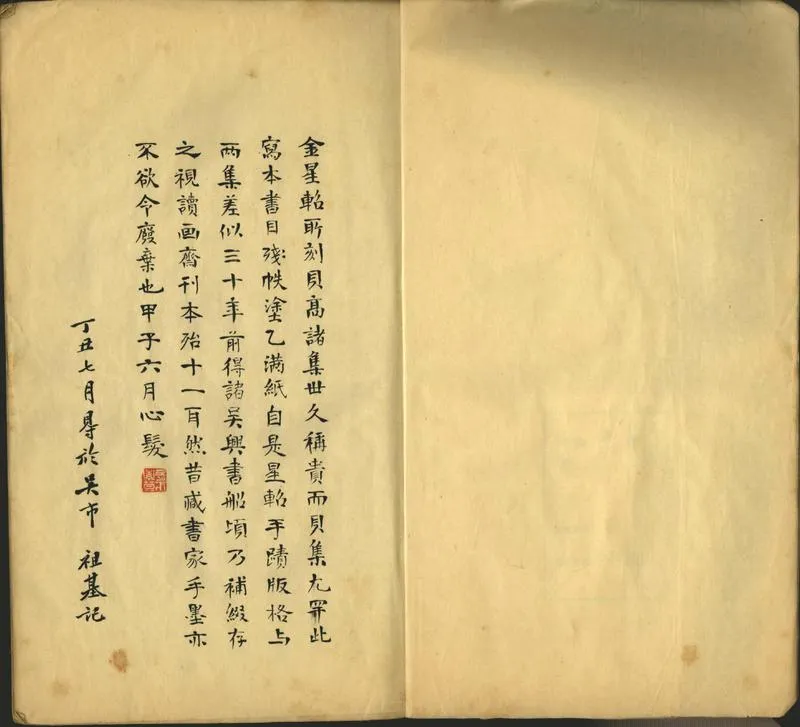 金星軺所刻貝高諸集世久稱貴而貝集尤罕此
寫本書目殘帙塗乙满紙自是星軺手蹟版格与
两集差似三十年前得諸吴興書船頃乃補綴存
之視讀画齋刊本殆十一耳然昔藏書家手墨亦
不欲令廢棄也甲子六月心髮
丁丑七月㝵於吴市 祖基記